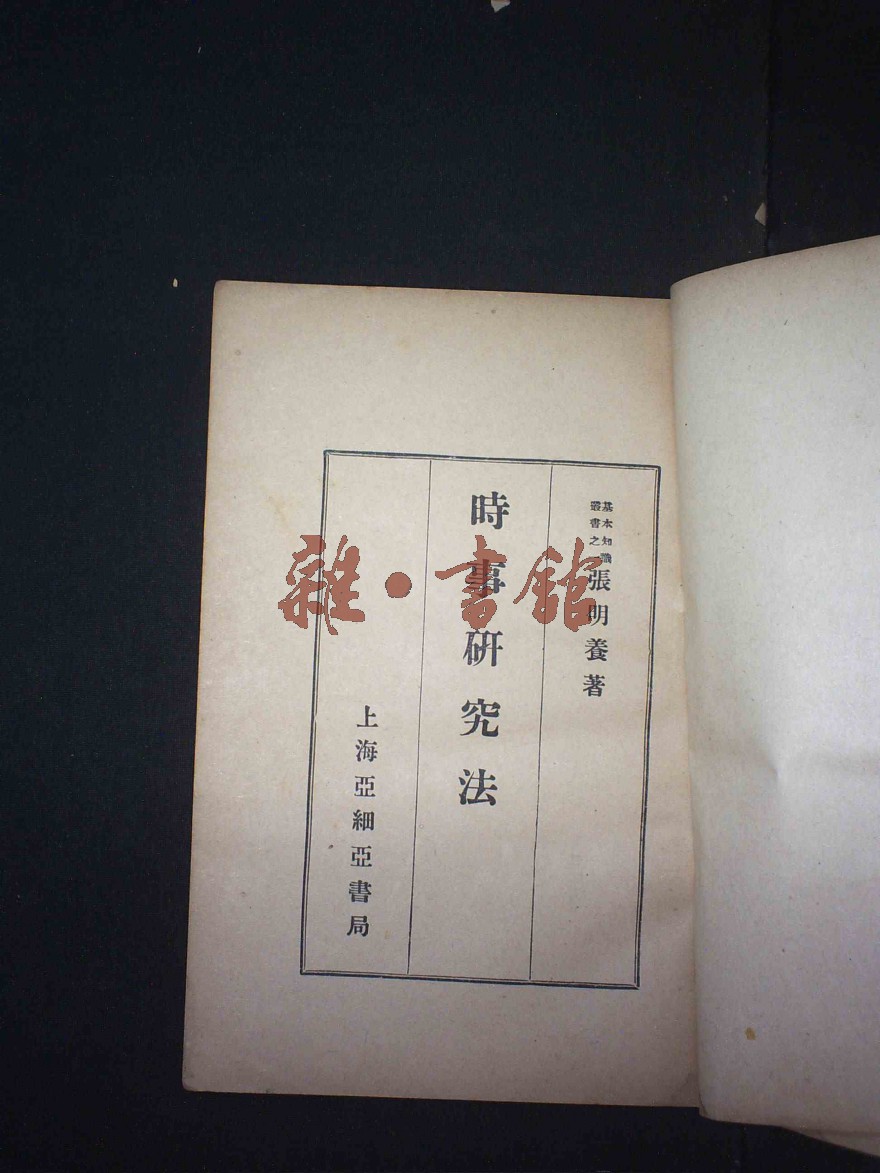 基本知識
叢書之
張明養著
時事研究法
上海亞細亞書局
雜·書館